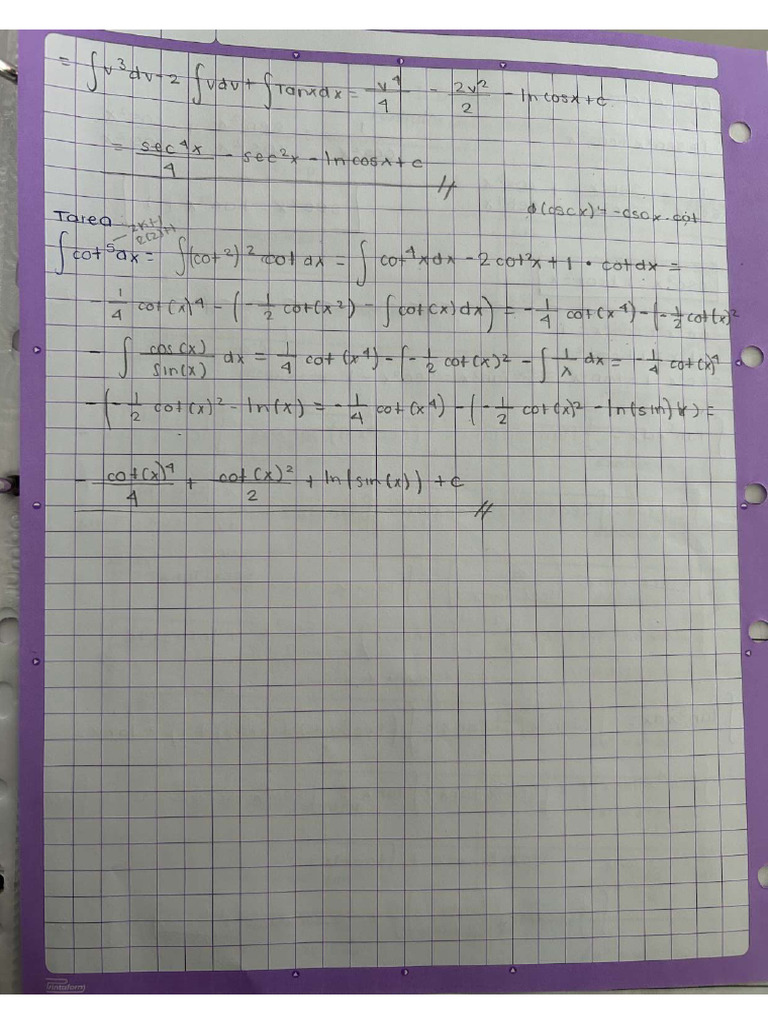 = ∫v³dv-2 ∫vdv + ∫Tanxdx = v⁴/4 - 2v²/2 - ln cosx + c
= sec⁴x/4 - sec²x - ln cosx + c //
(cscx) = -cscx·cot
Tarea 2k+1
2(2)+1
∫cot⁵dx = ∫(cot²)² cot dx = ∫ cot⁴xdx - 2cot²x + 1 · cotdx =
- 1/4 cot(x)⁴ - (- 1/2 cot(x²) - ∫cot(x)dx) = - 1/4 cot(x⁴) - (- 1/2 cot(x)²
- ∫ cos(x)/sin(x) dx = 1/4 cot(x⁴) - (- 1/2 cot(x)² - ∫ 1/x dx = - 1/4 cot(x)⁴
- (- 1/2 cot(x)² - ln(x) = - 1/4 cot(x⁴) - (- 1/2 cot(x)² - ln(sin)x) =
- cot(x)⁴/4 + cot(x)²/2 + ln(sin(x)) + c //